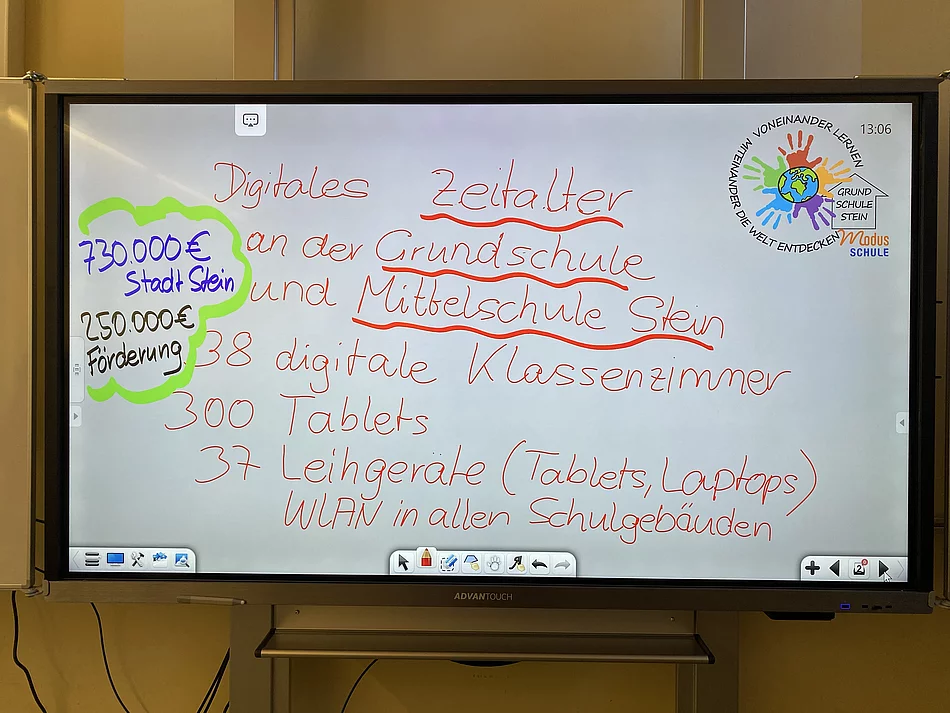 13:06
MITEINANDER VONEINANDER LERNEN
DIE WELT ENTDECKEN
GRUND
SCHULE
STEIN
Modus
SCHULE
Digitales Zeitalter
an der Grundschule
und Mittelschule Stein
730.000€
Stadt Stein
250.000€
Förderung
38 digitale Klassenzimmer
300 Tablets
37 Leihgeräte (Tablets, Laptops)
WLAN in allen Schulgebäuden
2
ADVANTOUCH